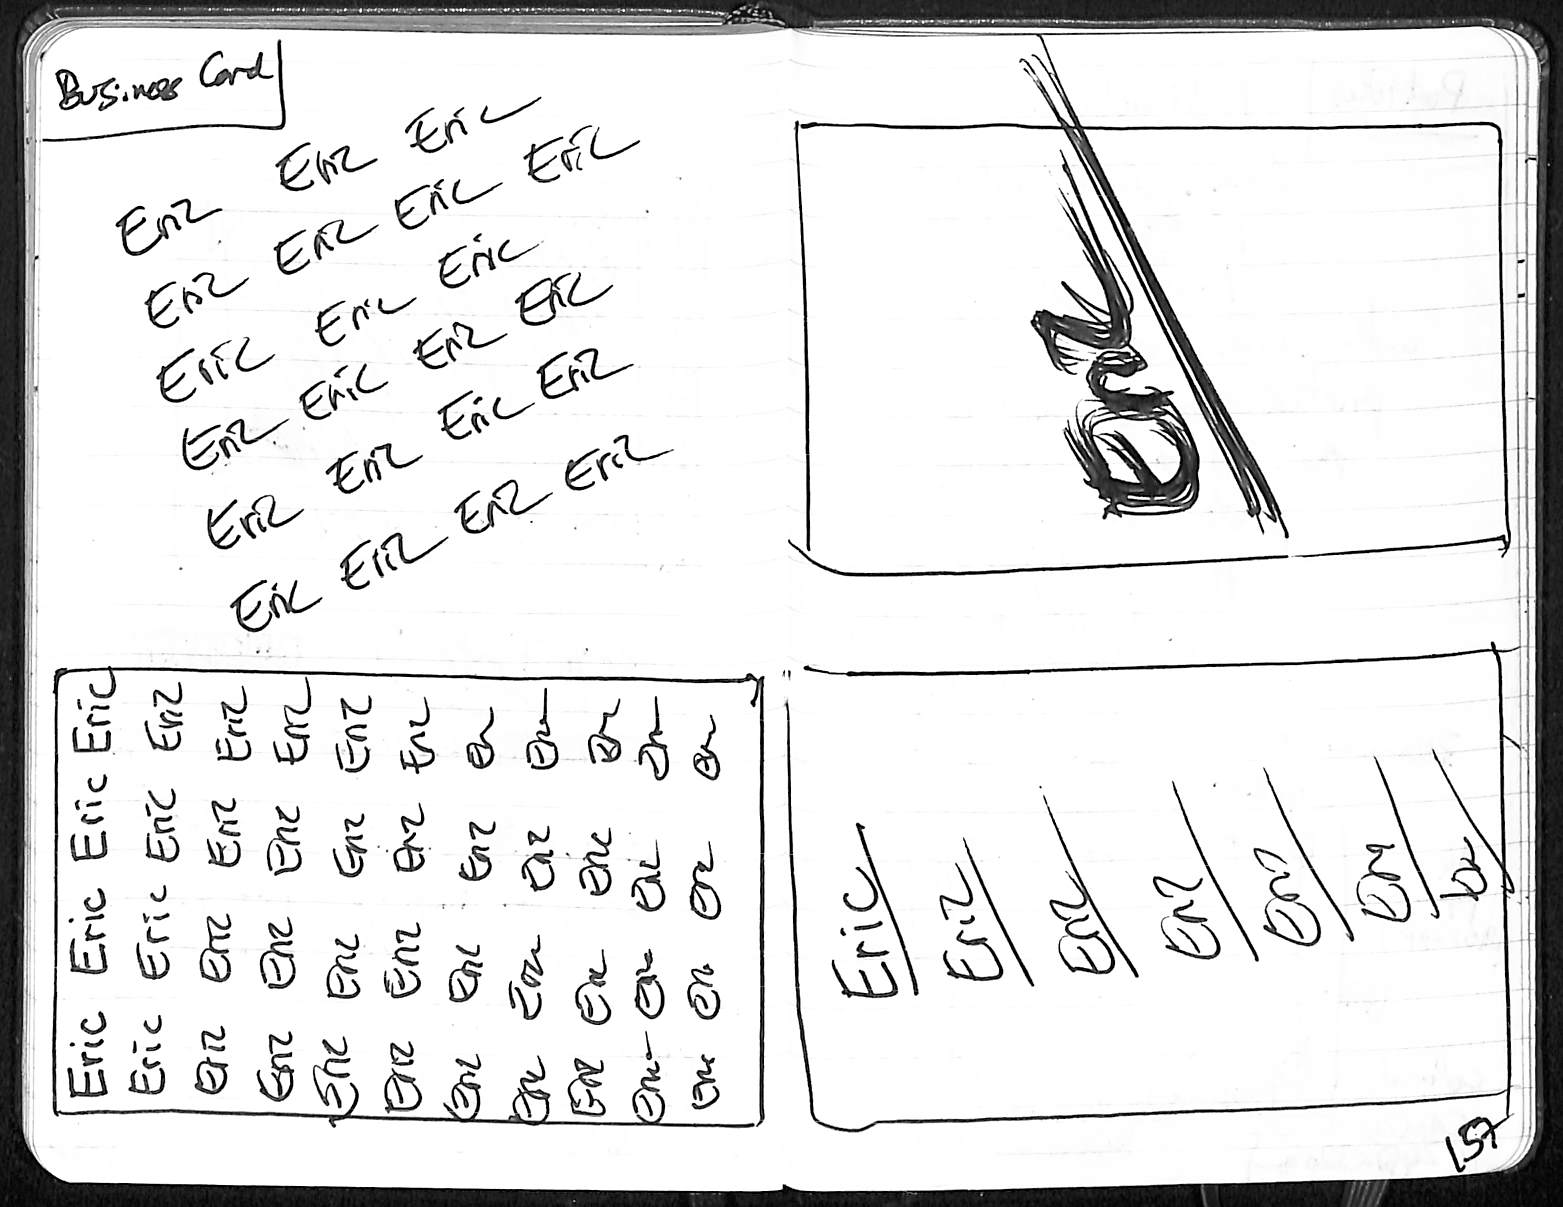 Business Card
Eric Eric Eric
Eric Eric Eric Eric
Eric Eric Eric
Eric Eric Eric Eric
Eric Eric Eric Eric
Eric Eric Eric Eric
Eric Eric Eric Eric
Eric Eric Eric Eric
Eric Eric Eric Eric
Eric Eric Eric Eric
Eric Eric Eric Eric
Eric Eric Eric Eric
Eric Eric Eric Eric
Eric Eric Eric Eric
Eric Eric Eric Eric
Eric Eric Eric Eric
Eric Eric Eric Eric
Eric
Eric
Eric
Eric
Eric
Eric
Eric
Eric
157